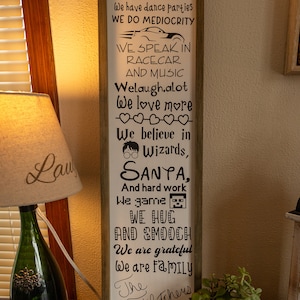 We have dance parties
WE DO MEDIOCRITY
WE SPEAK IN
RACECAR
AND MUSIC
We laugh alot
We love more
We believe in
Wizards,
SANTA,
And hard work
We game
WE HUG
AND SMOOCH
We are grateful
We are FAMILY
The